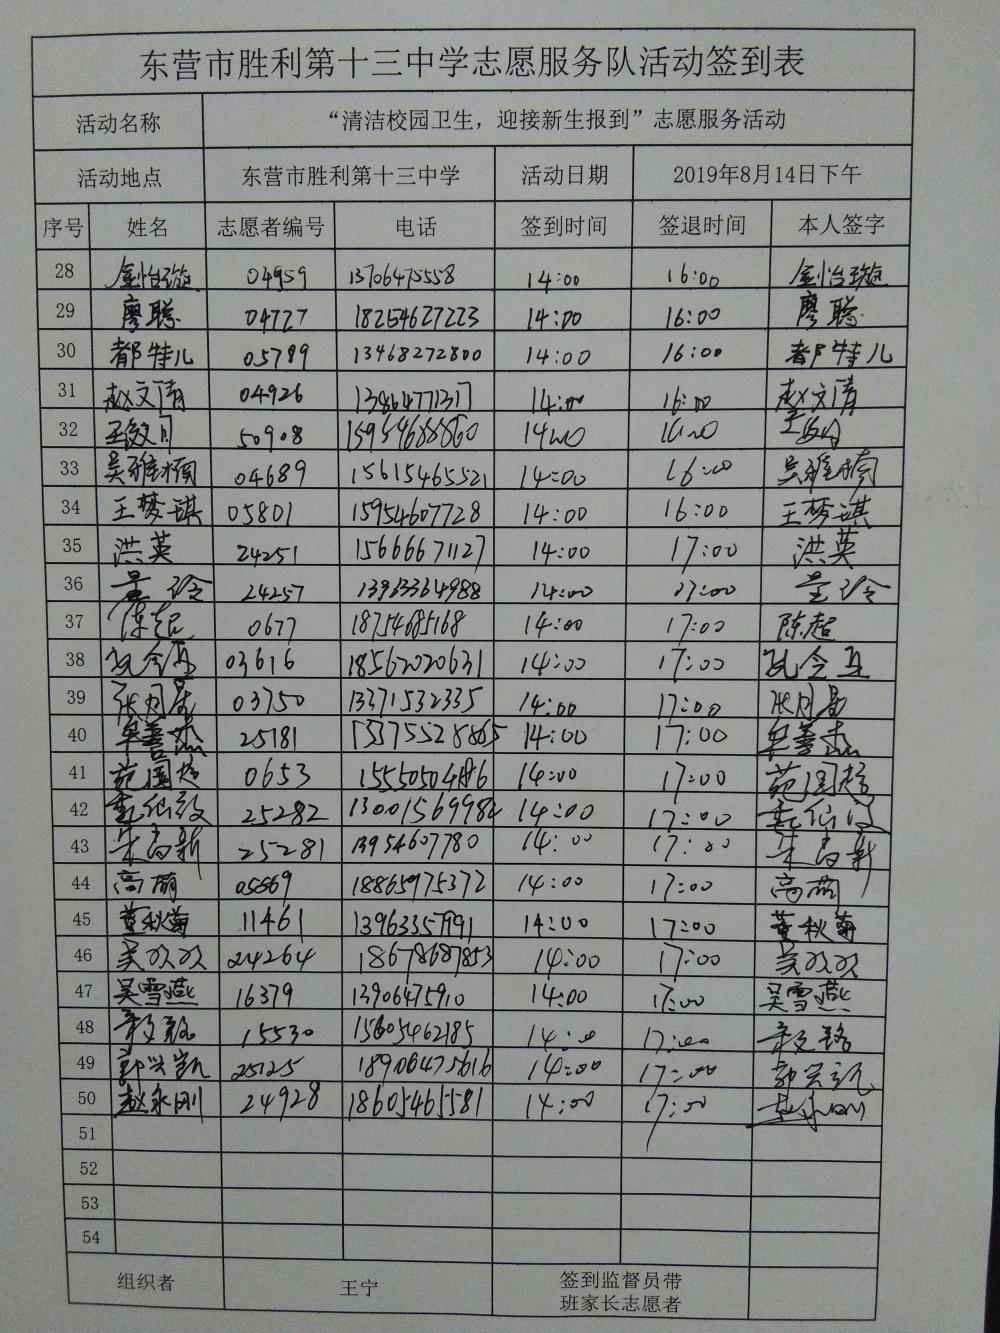 东营市胜利第十三中学志愿服务队活动签到表
活动名称 “清洁校园卫生，迎接新生报到”志愿服务活动
活动地点 东营市胜利第十三中学 活动日期 2019年8月14日下午
序号 姓名 志愿者编号 电话 签到时间 签退时间 本人签字
28 金怡璇 04959 13706475558 14:00 16:00 金怡璇
29 廖聪 04727 18254627223 14:00 16:00 廖聪
30 都特儿 05789 13468272800 14:00 16:00 都特儿
31 赵文清 04926 13864771317 14:00 16:00 赵文清
32 50908 15954688860 14:00 16:00
33 吴雅楠 04689 15615465521 14:00 16:00 吴雅楠
34 王梦琪 05801 15954607728 14:00 16:00 王梦琪
35 洪英 24251 15666671127 14:00 17:00 洪英
36 24257 13963364988 14:00 17:00
37 陈超 0677 18754685168 14:00 17:00 陈超
38 03616 18562020631 14:00 17:00
39 03750 13371532335 14:00 17:00
40 牟善杰 25181 15375528865 14:00 17:00 牟善杰
41 苑国超 0653 14:00 17:00 苑国超
42 25282 13001569982 14:00 17:00
43 25281 13954607780 14:00 17:00
44 高萌 05569 18865975372 14:00 17:00 高萌
45 董秋菊 11461 13963357991 14:00 17:00 董秋菊
46 吴双双 24264 18678687853 14:00 17:00 吴双双
47 吴雪燕 16379 13906475910 14:00 17:00 吴雪燕
48 15530 15605462185 14:00 17:00
49 郭兴凯 25125 18906475616 14:00 17:00 郭兴凯
50 赵永刚 24928 18605465581 14:00 17:00 赵永刚
51
52
53
54
组织者 王宁 签到监督员带
班家长志愿者